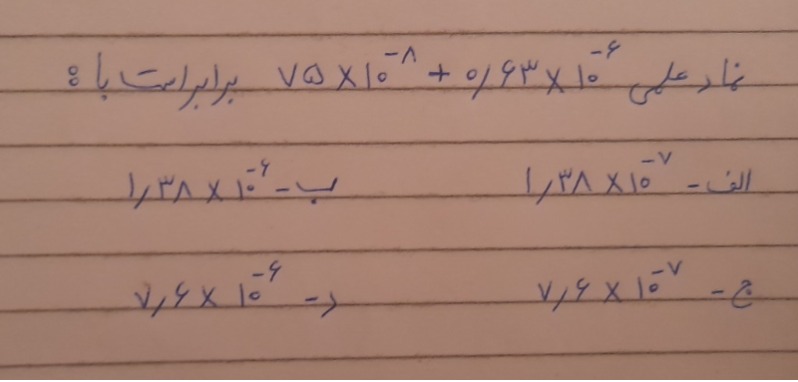 نماد علمی ۷۵×۱۰^-۸ + ۰/۶۳×۱۰^-۶ برابراست با :
الف - ۱/۳۸×۱۰^-۷ ب - ۱/۳۸×۱۰^-۶
ج - ۷/۶×۱۰^-۷ د - ۷/۶×۱۰^-۶